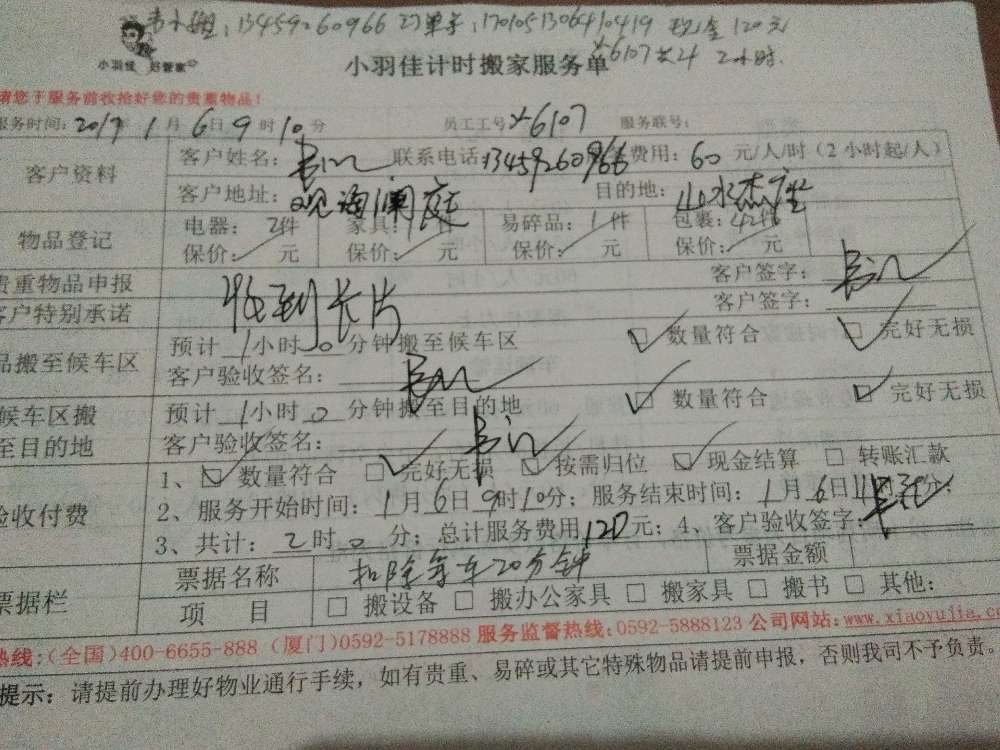 小姐:13459260966 订单号:1701051306410419 现金120元
小羽佳 好管家
小羽佳计时搬家服务单
6107 2小时.
请您于服务前收拾好您的贵重物品!
服务时间:2017年1月6日9时10分 员工工号 6107 服务联号:
客户资料
客户姓名: 联系电话:13459260966 费用:60元/人/时(2小时起/人)
客户地址:观海澜庭 目的地:
物品登记
电器:2件 家具: 件 易碎品:1件 包裹:42件
保价: 元 保价: 元 保价: 元 保价: 元
贵重物品申报 客户签字:
客户特别承诺 收到长片 客户签字:
品搬至候车区
预计1小时0分钟搬至候车区 数量符合 完好无损
客户验收签名:
候车区搬至目的地
预计1小时0分钟搬至目的地 数量符合 完好无损
客户验收签名:
验收付费
1、数量符合 完好无损 按需归位 现金结算 转账汇款
2、服务开始时间:1月6日9时10分;服务结束时间:1月6日11时30分;
3、共计:2时0分;总计服务费用120元;4、客户验收签字:
票据栏
票据名称 扣除等车20分钟 票据金额
项 目 搬设备 搬办公家具 搬家具 搬书 其他:
热线:(全国)400-6655-888 (厦门)0592-5178888 服务监督热线:0592-5888123 公司网站:www.xiaoyujia.c
提示:请提前办理好物业通行手续,如有贵重、易碎或其它特殊物品请提前申报,否则我司不予负责。